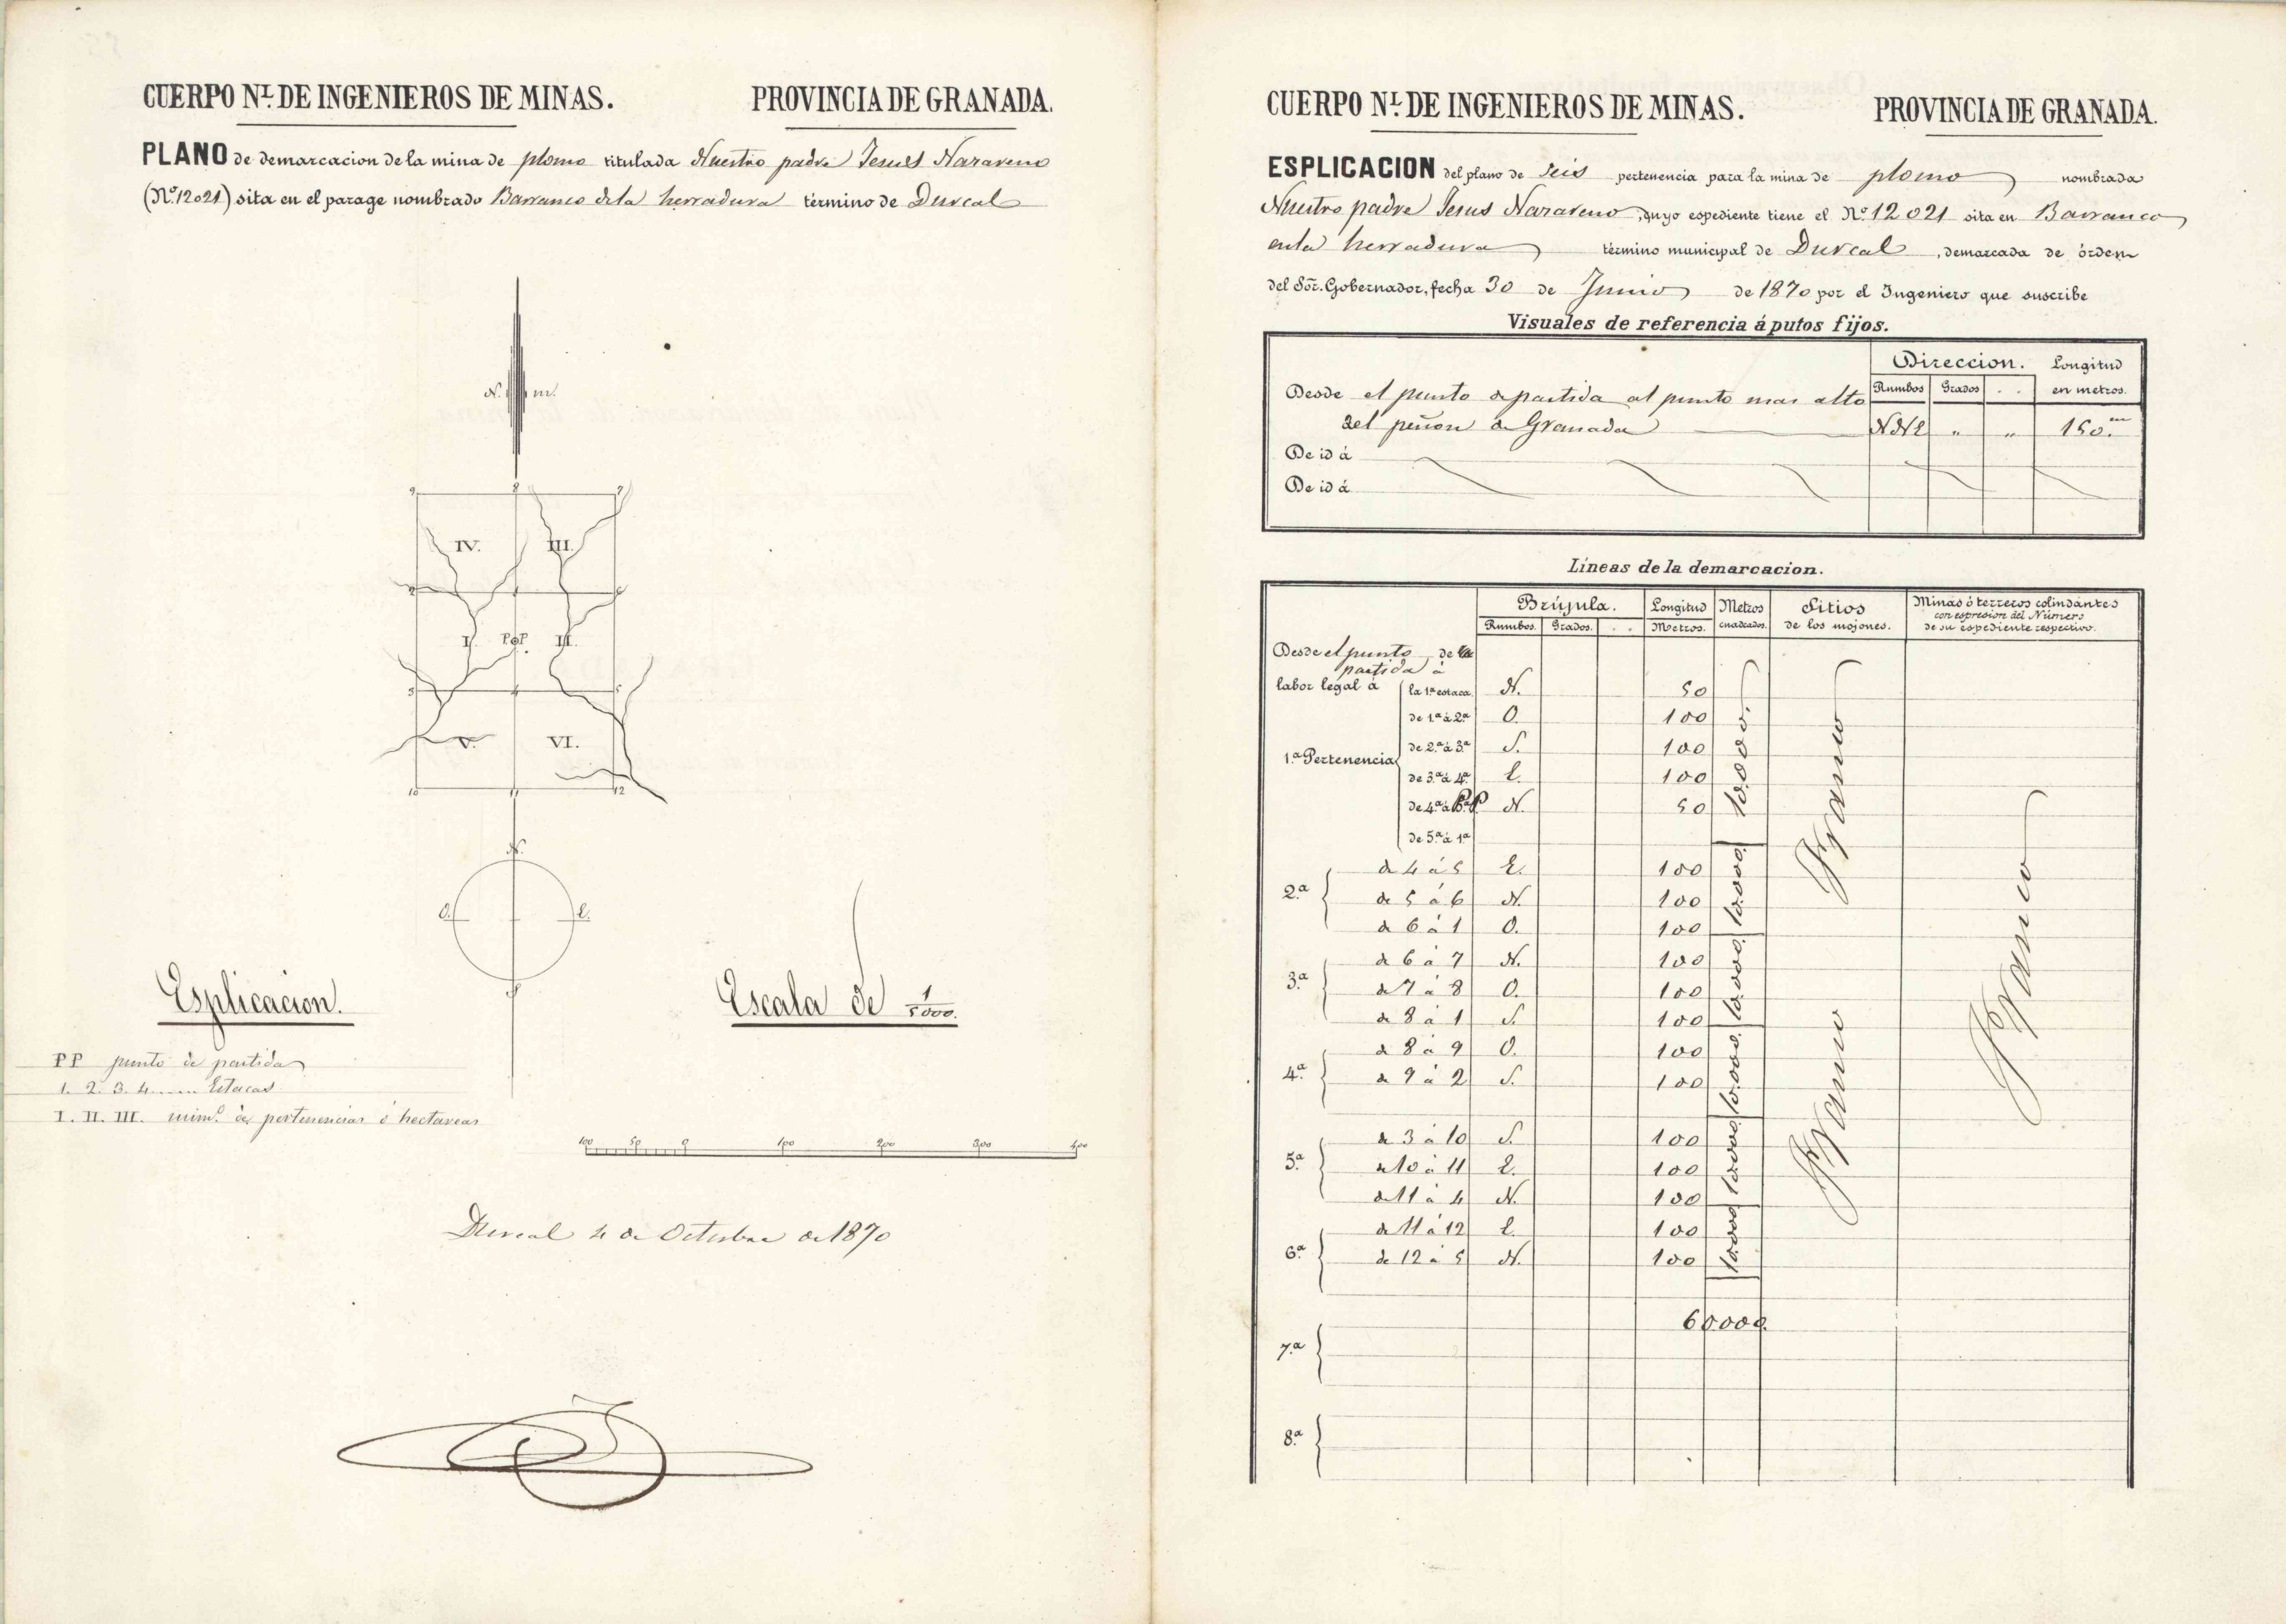 CUERPO Nˡ. DE INGENIEROS DE MINAS. PROVINCIA DE GRANADA.
PLANO de demarcacion de la mina de plomo titulada Nuestro padre Jesus Nazareno
(N.º 12021) sita en el parage nombrado Barranco de la herradura término de Durcal
N. m.
9 8 7
IV. III.
2 6
I. P.P. II.
3 4 5
V. VI.
10 11 12
N.
O. E.
S.
Esplicacion.
Escala de 1/5000.
P P punto de partida
1. 2. 3. 4. ...... Estacas
I. II. III. núm.º de pertenencias ó hectareas
100 50 0 100 200 300 400
Durcal 4 de Octubre de 1870
CUERPO Nˡ. DE INGENIEROS DE MINAS. PROVINCIA DE GRANADA.
ESPLICACION del plano de seis pertenencia para la mina de plomo nombrada
Nuestro padre Jesus Nazareno, cuyo espediente tiene el N.º 12021 sita en Barranco
de la herradura término municipal de Durcal, demarcada de órden
del Sor. Gobernador, fecha 30 de Junio de 1870 por el Ingeniero que suscribe
Visuales de referencia á putos fijos.
Direccion. Longitud
Rumbos Grados . . en metros.
Desde el punto de partida al punto mas alto
del peñon de Granada NNE " " 150.m
De id á
De id á
Lineas de la demarcacion.
Brújula. Longitud Metros Sitios Minas ó terrenos colindantes
con espresion del Número
Rumbos. Grados. . . Metros. cuadrados. de los mojones. de su espediente respectivo.
Desde el punto de la
partida á
labor legal á la 1.ª estaca N. 50
de 1.ª á 2.ª O. 100
1.ª Pertenencia de 2.ª á 3.ª S. 100 10.000.
de 3.ª á 4.ª E. 100
de 4.ª á P.P. N. 50
de 5.ª á 1.ª
de 4 á 5 E. 100
2.ª de 5 á 6 N. 100 10.000
de 6 á 1 O. 100
de 6 á 7 N. 100
3.ª de 7 á 8 O. 100 10.000.
de 8 á 1 S. 100
de 8 á 9 O. 100
4.ª de 9 á 2 S. 100 10.000.
de 3 á 10 S. 100
5.ª de 10 á 11 E. 100 10.000
de 11 á 4 N. 100
de 11 á 12 E. 100
6.ª de 12 á 5 N. 100 10.000
Franco
Franco
Franco
60000.
7.ª
8.ª